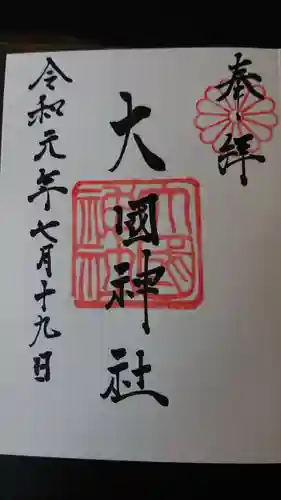 奉拝
大國神社
令和元年七月十九日